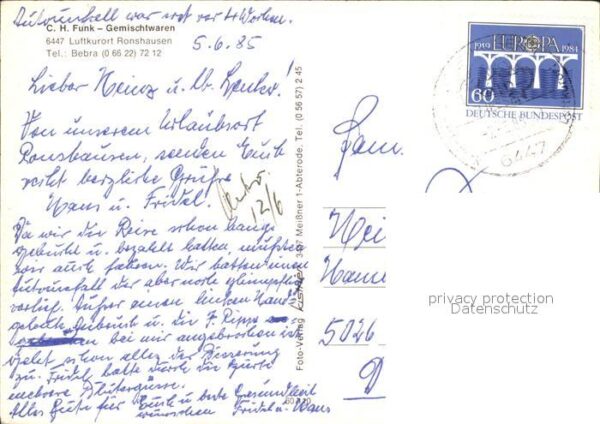 Autounfall war erst vor 4 Wochen.
C. H. Funk – Gemischtwaren
6447 Luftkurort Ronshausen
Tel.: Bebra (0 66 22) 72 12
5.6.85
Lieber Heinz u. lb.
Von unserem Urlaubsort
Ronshausen, senden Euch
recht herzliche Grüße
Hans u. Fridel.
12/6
Da wir der Reise schon lange
gebucht u. bezahlt hatten, mußten
wir auch fahren. Wir hatten einen
Autounfall der aber noch glimpflich
verlief. Außer einen linken Hand
gelenk u. die 7. Rippe
bei mir angebrochen ist
schon alles der Besserung
zu. Fridel hatte durch die Gurte
mehrere Blutergüsse.
Alles Gute für Euch u. beste Gesundheit
wünschen Fridel u. Hans
Foto-Verlag 3447 Meißner 1-Abterode, Tel. (0 56 57) 2 45
EUROPA
1959 1984
60
DEUTSCHE BUNDESPOST
6447
Fam.
Hei
Hann
5026
D
privacy protection
Datenschutz